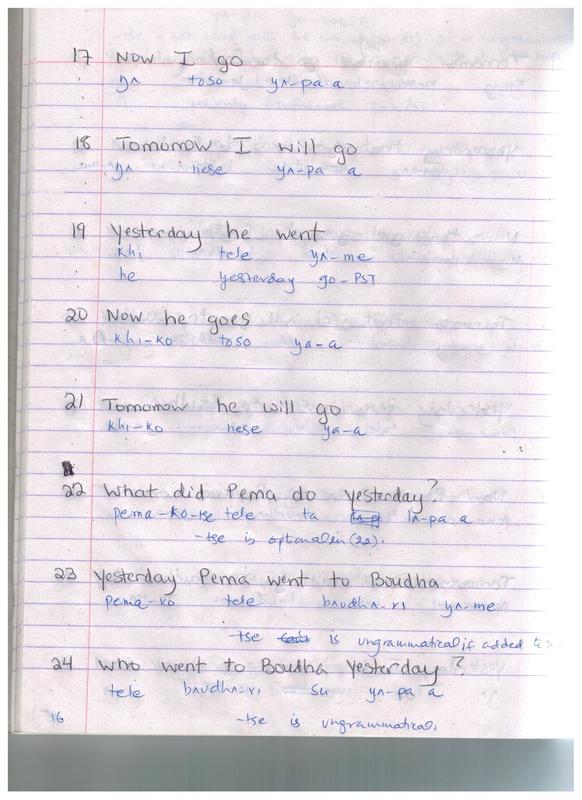 17 Now I go
ŋʌ toso yʌ-pa a
18 Tomorrow I will go
ŋʌ nese yʌ-pa a
19 Yesterday he went
khi tele yʌ-me
he yesterday go-PST
20 Now he goes
khi-ko toso ya-a
21 Tomorrow he will go
khi-ko nese ya-a
22 What did Pema do yesterday?
pema-ko-tse tele ta lʌ-pa a
-tse is optional in (22).
23 Yesterday Pema went to Boudha
pema-ko tele bʌudhʌ-ri yʌ-me
-tse is ungrammatical if added to
24 Who went to Boudha yesterday?
tele bʌudhʌ-ri su yʌ-pa a
16 -tse is ungrammatical.